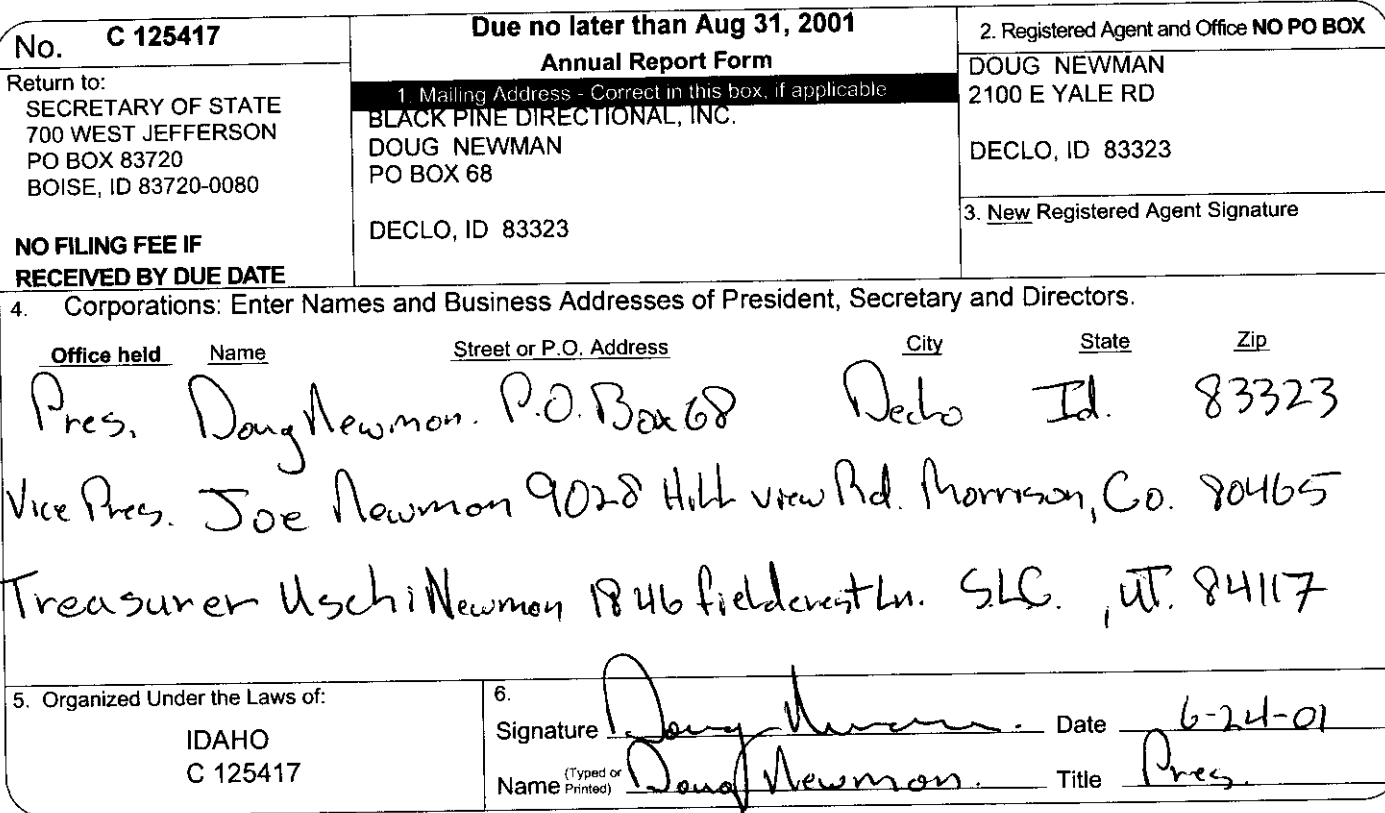 No. C 125417
Return to:
SECRETARY OF STATE
700 WEST JEFFERSON
PO BOX 83720
BOISE, ID 83720-0080
NO FILING FEE IF
RECEIVED BY DUE DATE
Due no later than Aug 31, 2001
Annual Report Form
1. Mailing Address - Correct in this box, if applicable
BLACK PINE DIRECTIONAL, INC.
DOUG NEWMAN
PO BOX 68
DECLO, ID 83323
2. Registered Agent and Office NO PO BOX
DOUG NEWMAN
2100 E YALE RD
DECLO, ID 83323
3. New Registered Agent Signature
4. Corporations: Enter Names and Business Addresses of President, Secretary and Directors.
Office held Name Street or P.O. Address City State Zip
Pres. Doug Newman. P.O. Box 68 Declo Id. 83323
Vice Pres. Joe Newman 9028 Hill view Rd. Morrison, Co. 80465
Treasurer Uschi Newman 1846 fieldcrest Ln. SLC. , UT. 84117
5. Organized Under the Laws of:
IDAHO
C 125417
6.
Signature Doug Newman. Date 6-24-01
Name (Typed or Printed) Doug Newman. Title Pres.